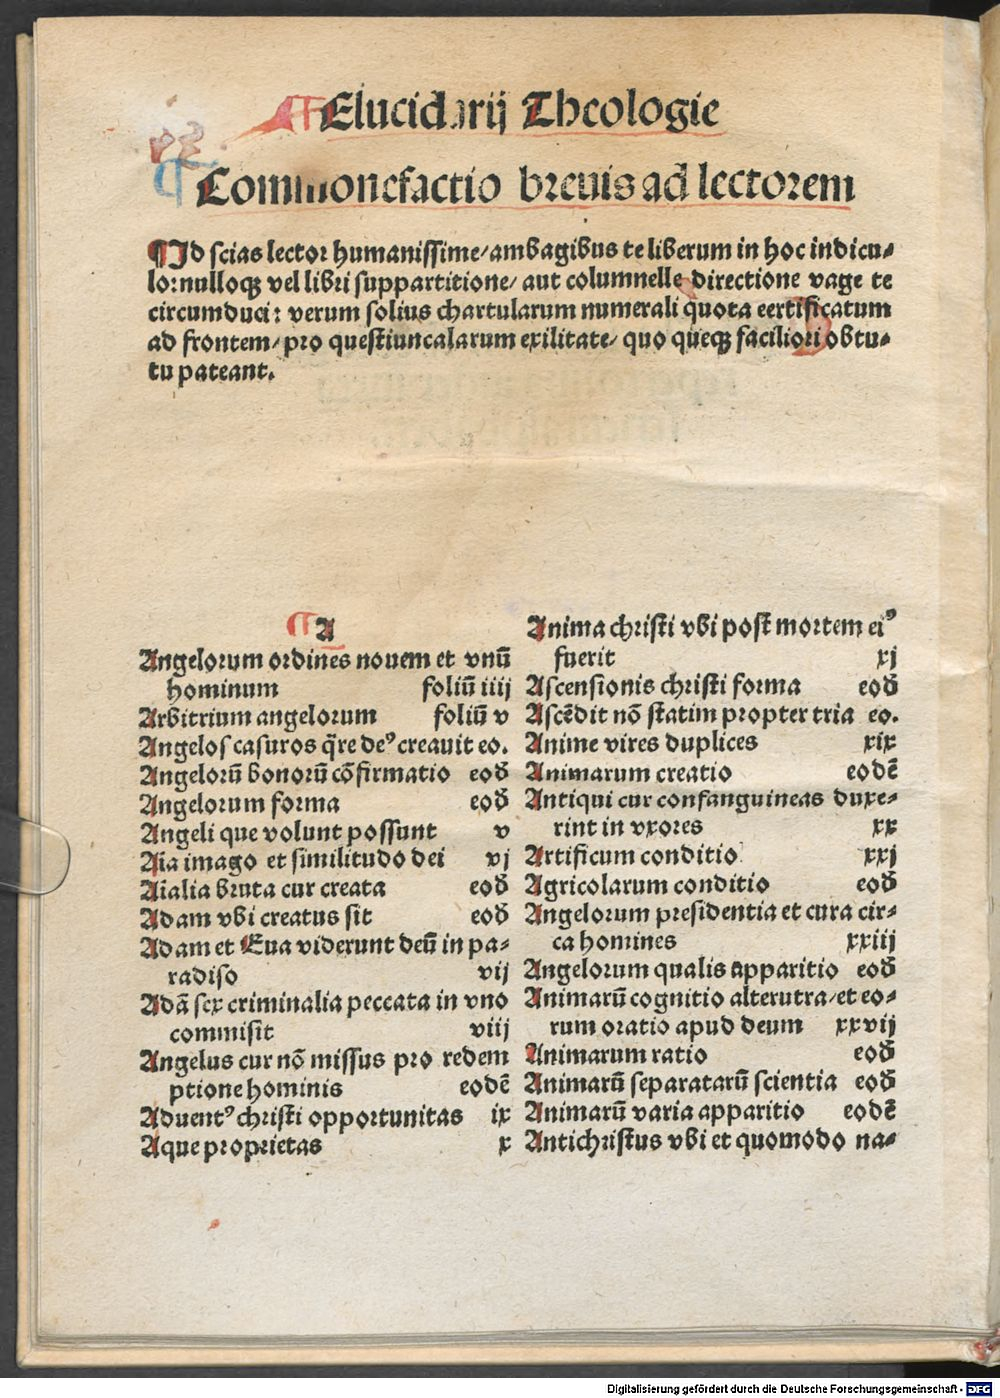 ¶ Elucidarij Theologie
¶ Commonefactio breuis ad lectorem
¶ Id scias lector humanissime/ambagibus te liberum in hoc indicu⸗
lo: nulloqꝫ vel libri suppartitione/ aut columnelle directione vage te
circumduci: verum solius chartularum numerali quota eertificatum
ad frontem/pro questiuncalarum exilitate/ quo queqꝫ faciliori obtu⸗
tu pateant.
¶ A
Angelorum ordines nouem et vnū
hominum foliū iiij
Arbitrium angelorum foliū v
Angelos casuros q̄re deꝰ creauit eo.
Angelorū bonorū cōfirmatio eod̄
Angelorum forma eod̄
Angeli que volunt possunt v
Aīa imago et similitudo dei vj
Aīalia bruta cur creata eod̄
Adam vbi creatus sit eod̄
Adam et Eua viderunt deū in pa⸗
radiso vij
Adā sex criminalia peccata in vno
commisit viij
Angelus cur nō missus pro redem
ptione hominis eodē
Aduentꝰ christi opportunitas ix
Aque proprietas x
Anima christi vbi post mortem eiꝰ
fuerit xj
Ascensionis christi forma eod̄
Ascēdit nō statim propter tria eo.
Anime vires duplices xix
Animarum creatio eodē
Antiqui cur confanguineas duxe⸗
rint in vxores xx
Artificum conditio xxj
Agricolarum conditio eod̄
Angelorum presidentia et cura cir⸗
ca homines xxiij
Angelorum qualis apparitio eod̄
Animarū cognitio alterutra/et eo⸗
rum oratio apud deum xxvij
Animarum ratio eod̄
Animarū separatarū scientia eod̄
Animarū varia apparitio eodē
Antichristus vbi et quomodo na⸗
Digitalisierung gefördert durch die Deutsche Forschungsgemeinschaft - DFG